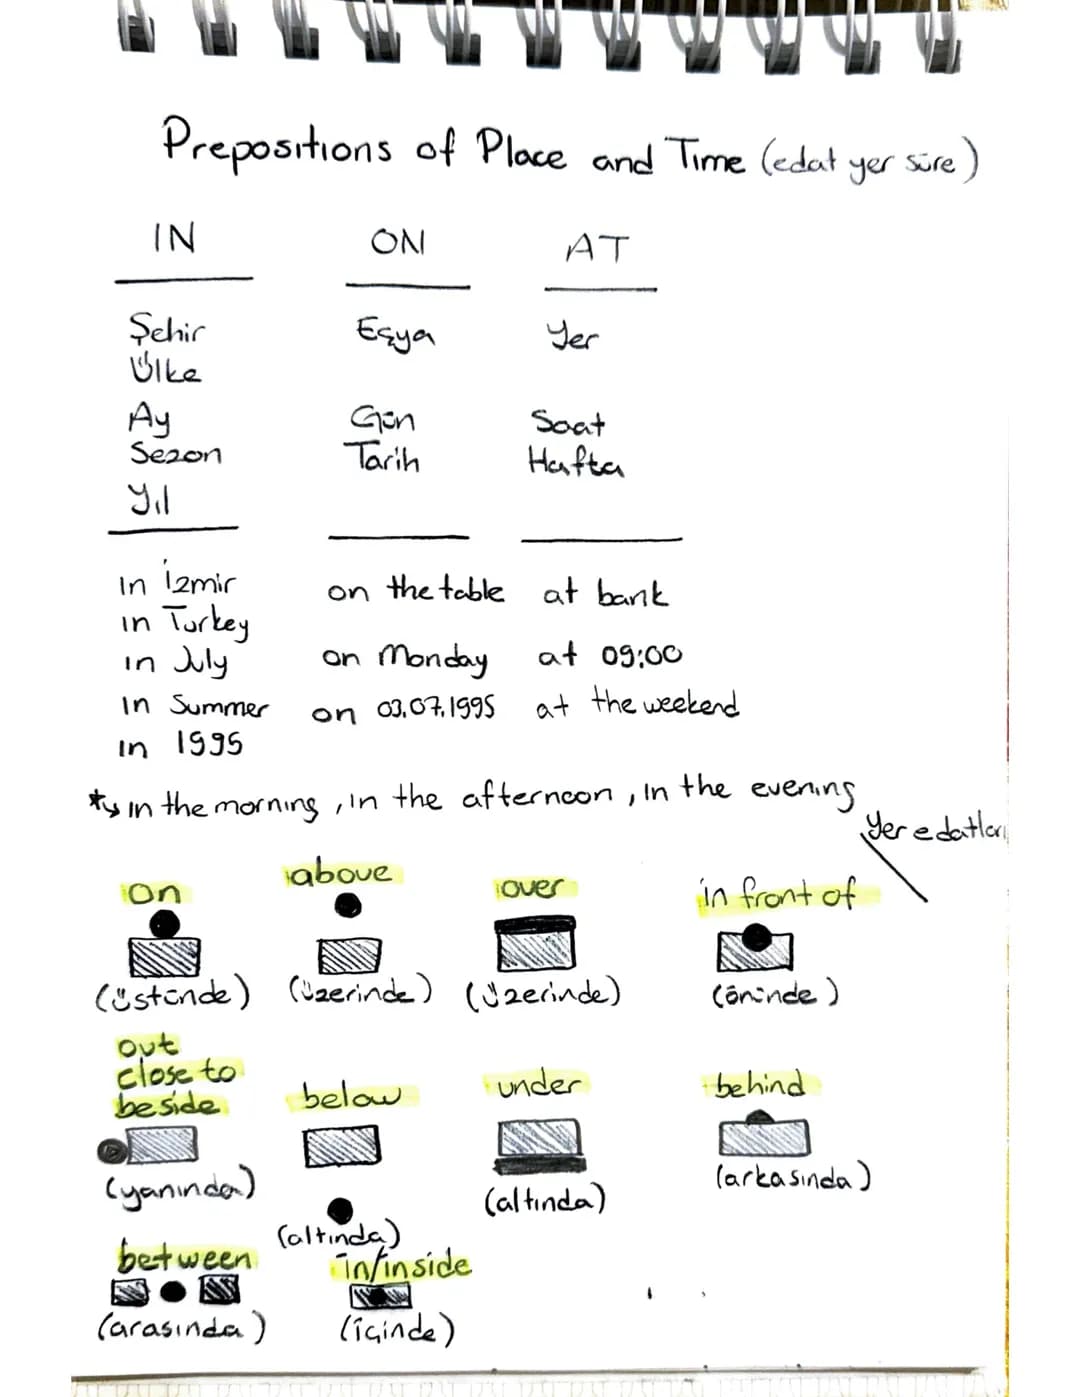 Prepositions of Place and Time (edat yer süre)
IN ON AT
Şehir Eşya Yer
Ülke
Ay Gün Saat
Sezon Tarih Hafta
Yıl
in İzmir on the table at bank
in Turkey
in July on Monday at 09:00
in Summer on 03.07.1995 at the weekend
in 1995
*↳ in the morning, in the afternoon, in the evening
Yer edatları
on above over in front of
(üstünde) (üzerinde) (üzerinde) (önünde)
out
close to
beside below under behind
(yanında) (altında) (altında) (arkasında)
between in/inside
(arasında) (içinde)